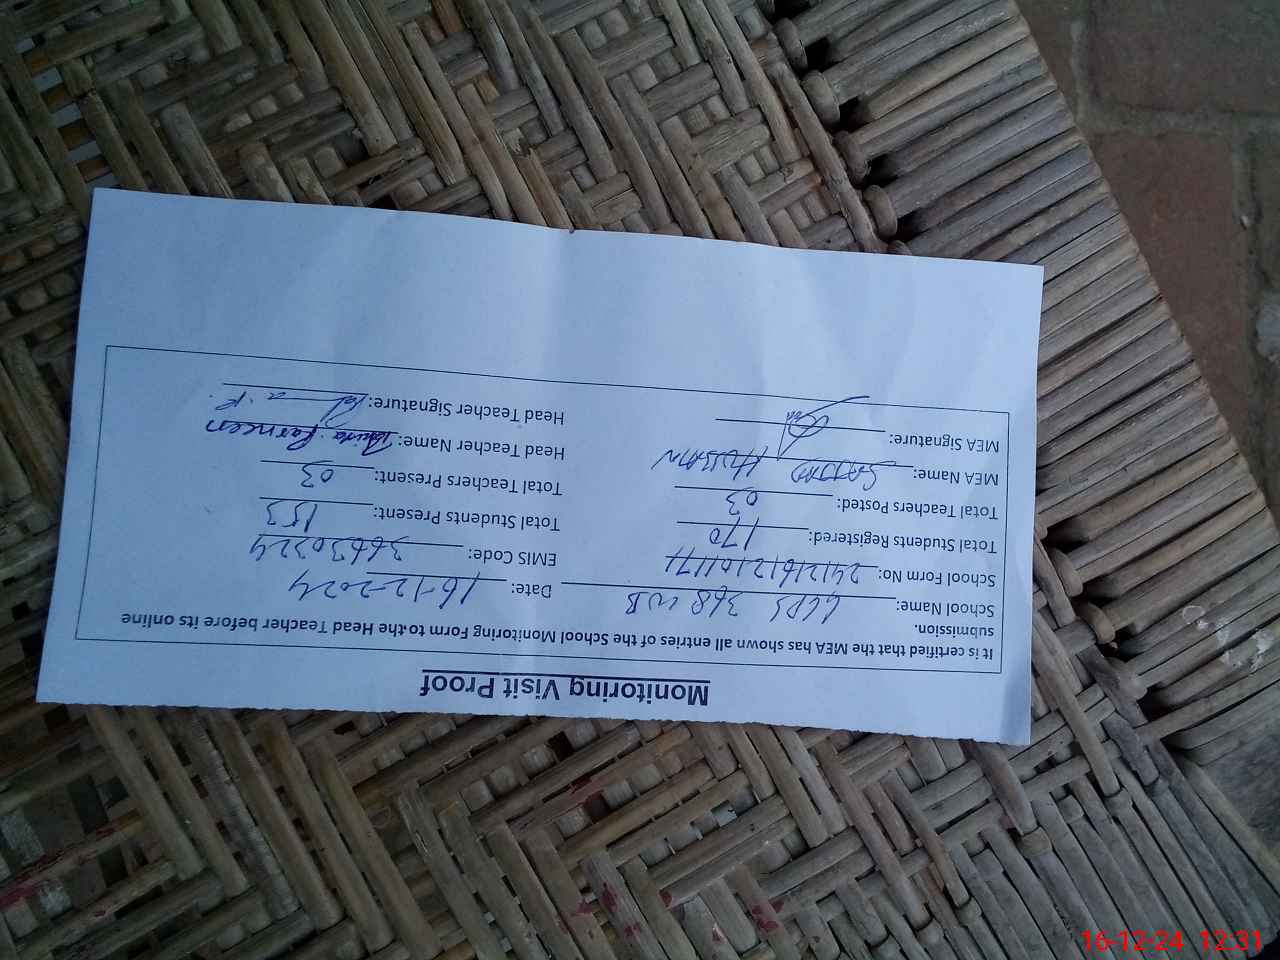 Monitoring Visit Proof
It is certified that the MEA has shown all entries of the School Monitoring Form to the Head Teacher before its online
submission.
School Name: GGPS 368 WB Date: 16-12-2024
School Form No: 24121612101171 EMIS Code: 36630324
Total Students Registered: 170 Total Students Present: 153
Total Teachers Posted: 03 Total Teachers Present: 03
MEA Name: SAJJAD HUSSAIN Head Teacher Name: Parveen
MEA Signature: Head Teacher Signature:
16-12-24 12:31